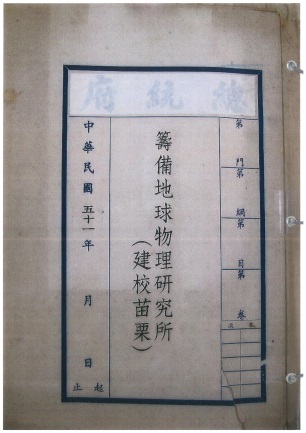 總統府
第 門第 綱第 目第 卷
止 起
籌備地球物理研究所
（建校苗栗）
中華民國五十一年 月 日
起
止